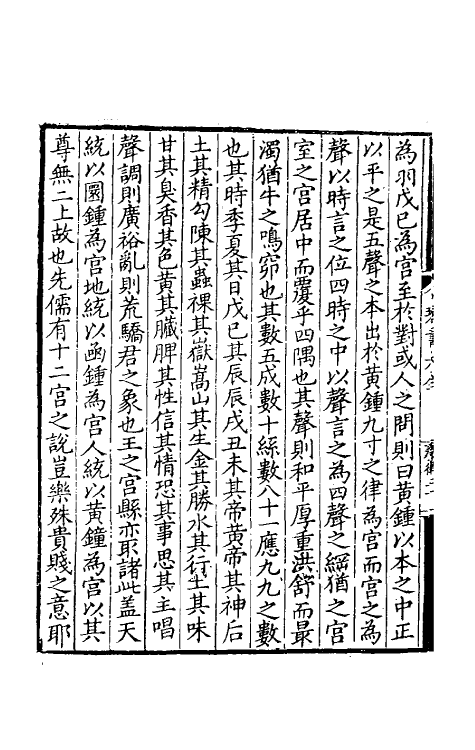 為羽戊巳為宫至於對或人之問則曰黄鍾以本之中正
以平之是五聲之本出於黄鍾九寸之律為宫而宫之為
聲以時言之位四時之中以聲言之為四聲之綱猶之宫
室之宫居中而覆乎四隅也其聲則和平厚重洪舒而最
濁猶牛之鳴窌也其數五成數十絲數八十一應九九之數
也其時季夏其日戊巳其辰辰戌丑未其帝黄帝其神后
土其精勾陳其蟲裸其嶽嵩山其生金其勝水其行土其味
甘其臭香其色黄其臓脾其性信其情恐其事思其主唱
聲調則廣裕亂則荒驕君之象也王之宫縣亦取諸此盖天
統以圜鍾為宫地統以函鍾為宫人統以黄鐘為宫以其
尊無二上故也先儒有十二宫之說豈樂殊貴賤之意耶